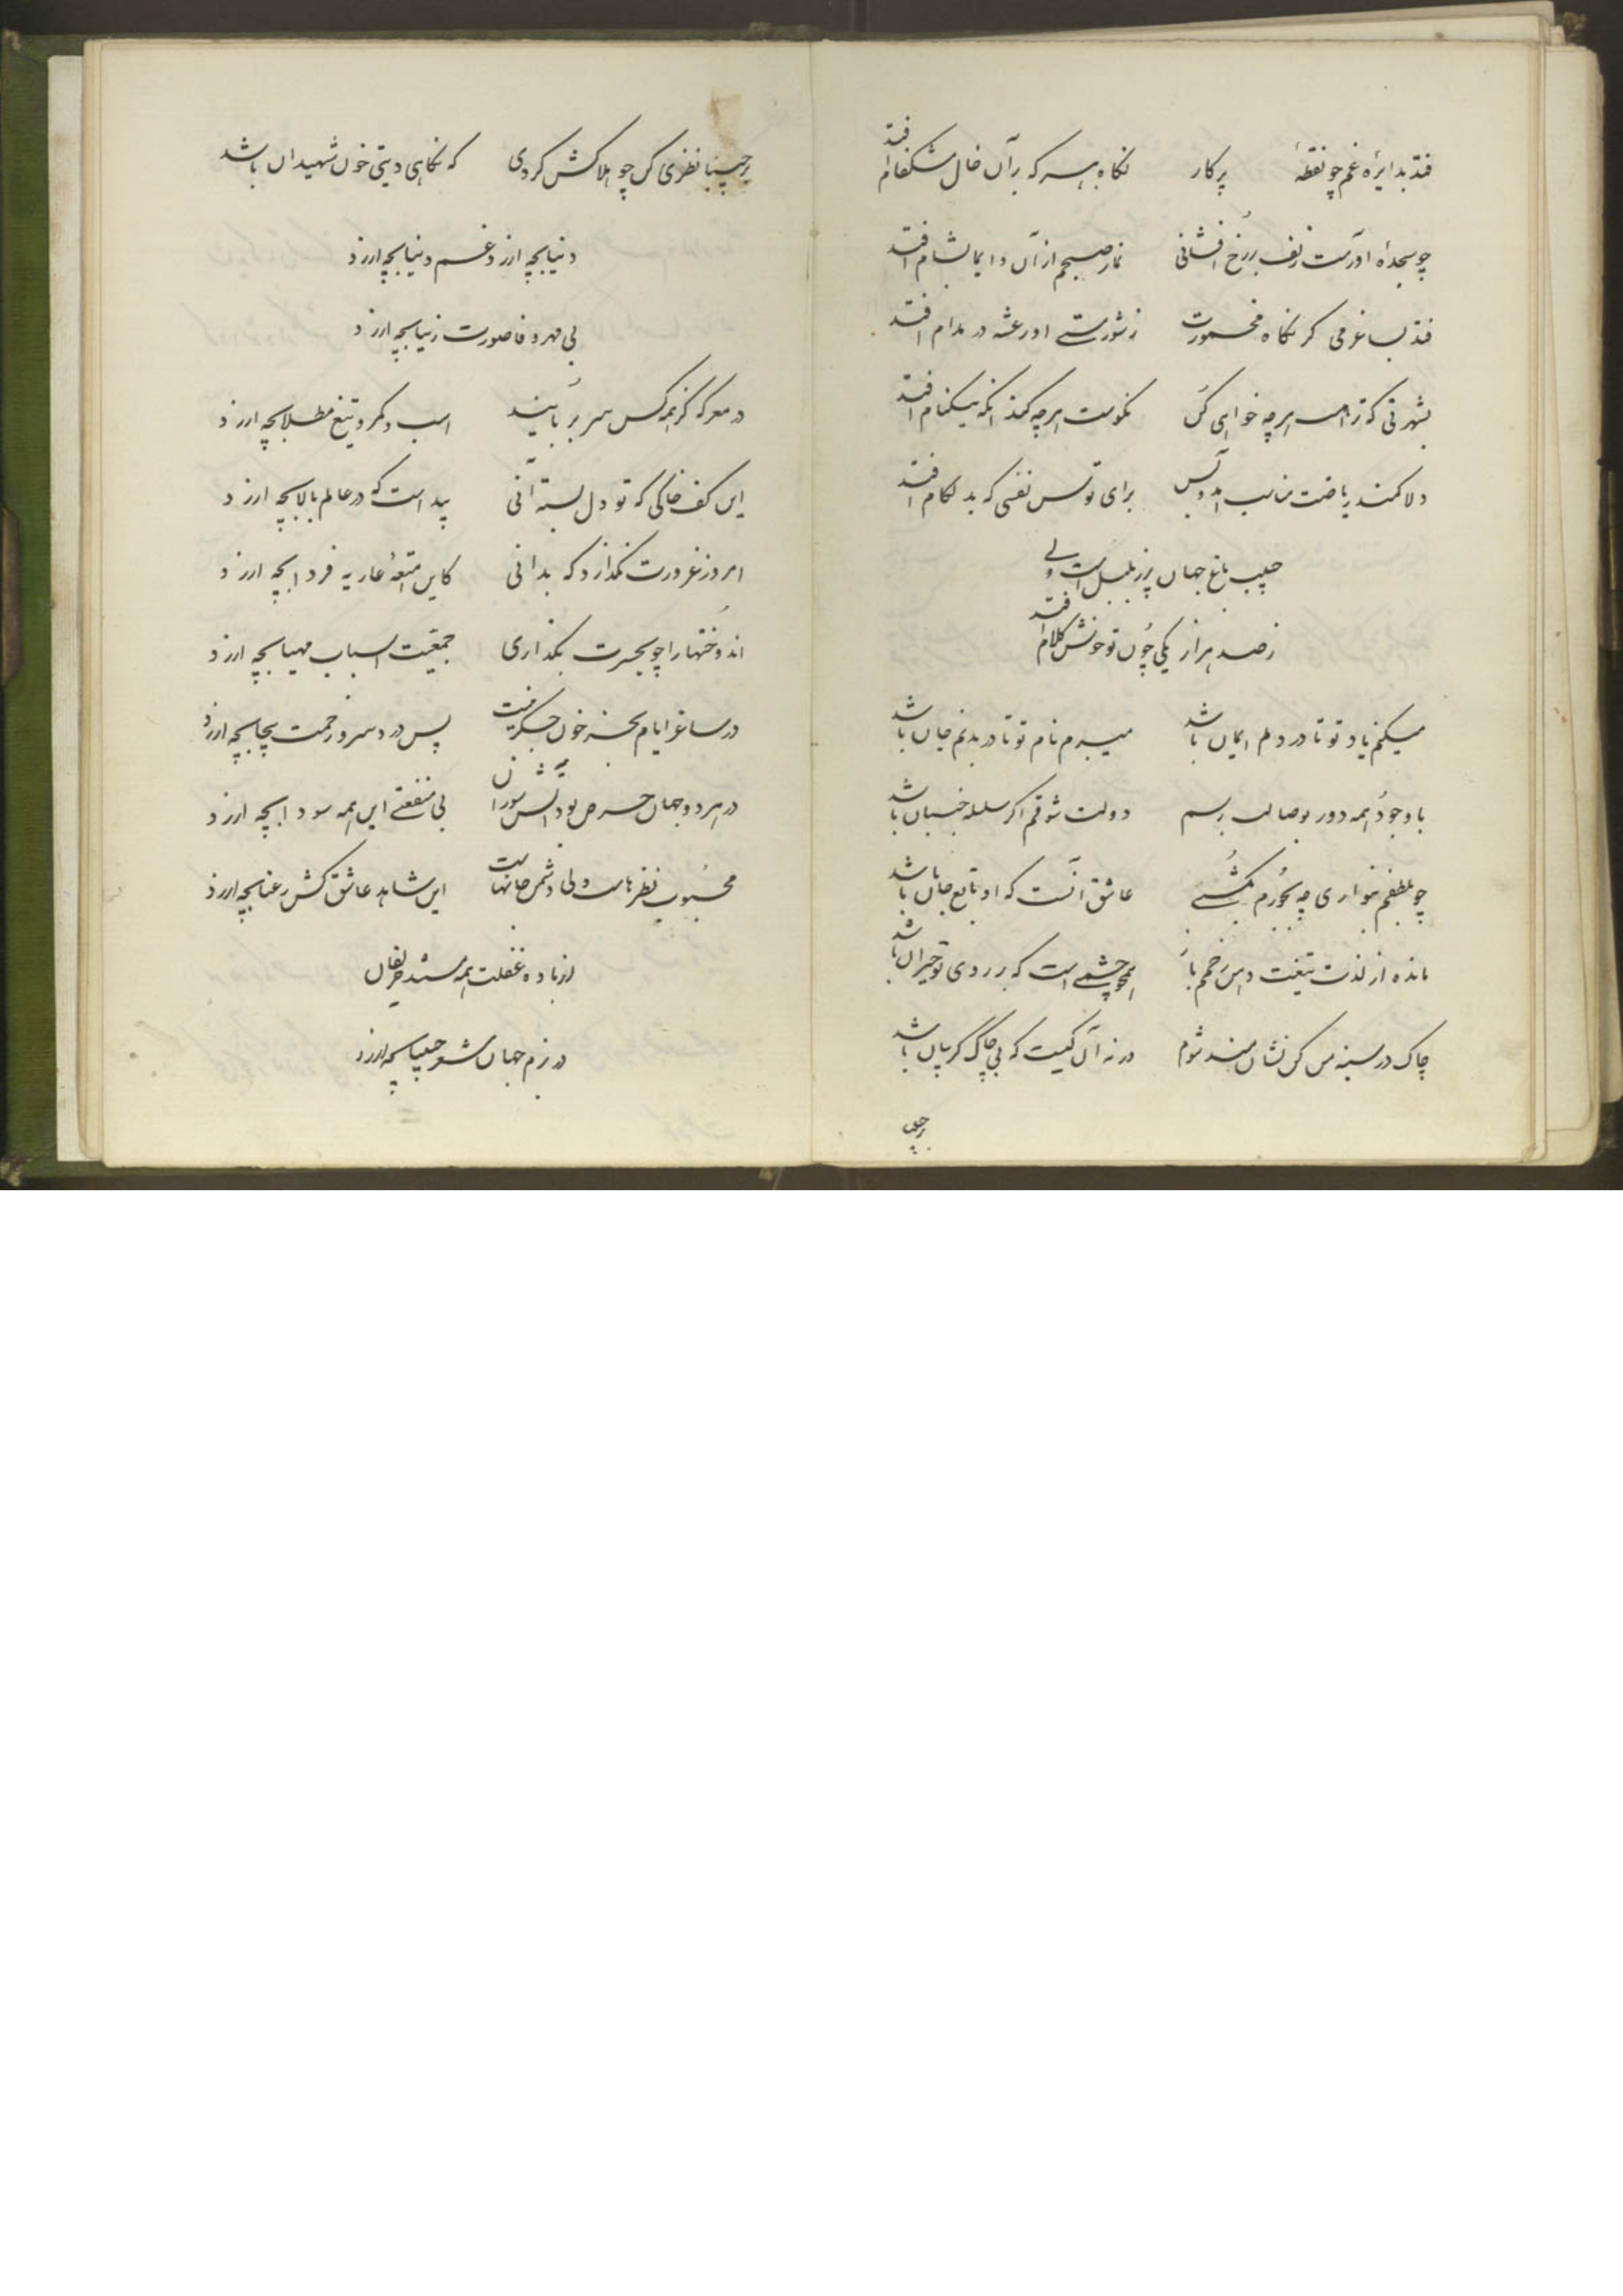 فتد بدایرهٔ غم چو نقطهٔ پرکار نگاه هر که بر آن خال مشکفام افتد
چو سجده آورمت زلف بر رخ افشانی نماز صبحم از آن دایما بشام افتد
فتد بساغر می گر نگاه مخمورت ز شور مستی او رعشه در مدام افتد
بشهرتی که تراهست هر چه خواهی کن نکوست هر چه کند آنکه نیکنام افتد
دلا کمند ریاضت مناسب آمد و بس برای توسن نفسی که بد لگام افتد
حبیب باغ جهان پر ز بلبل است ولی
ز صد هزار یکی چون تو خوش کلام افتد
میکنم یاد تو تا در دلم ایمان باشد میبرم نام تو تا در بدنم جان باشد
با وجود همه دور بوصالت برسم دولت شوقم اگر سلسله جنبان باشد
چو بلطفم ننوازی چه بجورم بکشی عاشق آنست که او تابع جانان باشد
مانده از لذت تیغت دهن زخمم باز همچو چشمی است که بر روی تو حیران باشد
چاک در سینه من کن نشانمند شوم ورنه آن کیست که بی چاک گریبان باشد
بر حبیب
بر حبیبا نظری کن چو هلاکش کردی که نگاهی دیتی خون شهیدان باشد
دنیا بچه ارزد و غم دنیا بچه ارزد
بی مهر و وفا صورت زیبا بچه ارزد
در معرکه کز همه کس سر بربایند اسب و کمر و تیغ مطلا بچه ارزد
این کف خاکی که تو دل بستهٔ آنی پیداست که در عالم بالا بچه ارزد
امروز غرورت نگذارد که بدانی کاین امتعهٔ عاریه فردا بچه ارزد
اندوختها را چو بحسرت بگذاری جمعیت اسباب مهیا بچه ارزد
در ساغر ایام بجز خون جگر نیست پس درد سر و زحمت بیجا بچه ارزد
در هر دو جهان حرص بود بی منفعتی این همه سودا بچه ارزد
محبوب نظرهاست ولی دشمن جانهاست این شاهد عاشق کش رعنا بچه ارزد
از باده غفلت همه مستند حریفان
در بزم جهان شعر حبیبا بچه ارزد